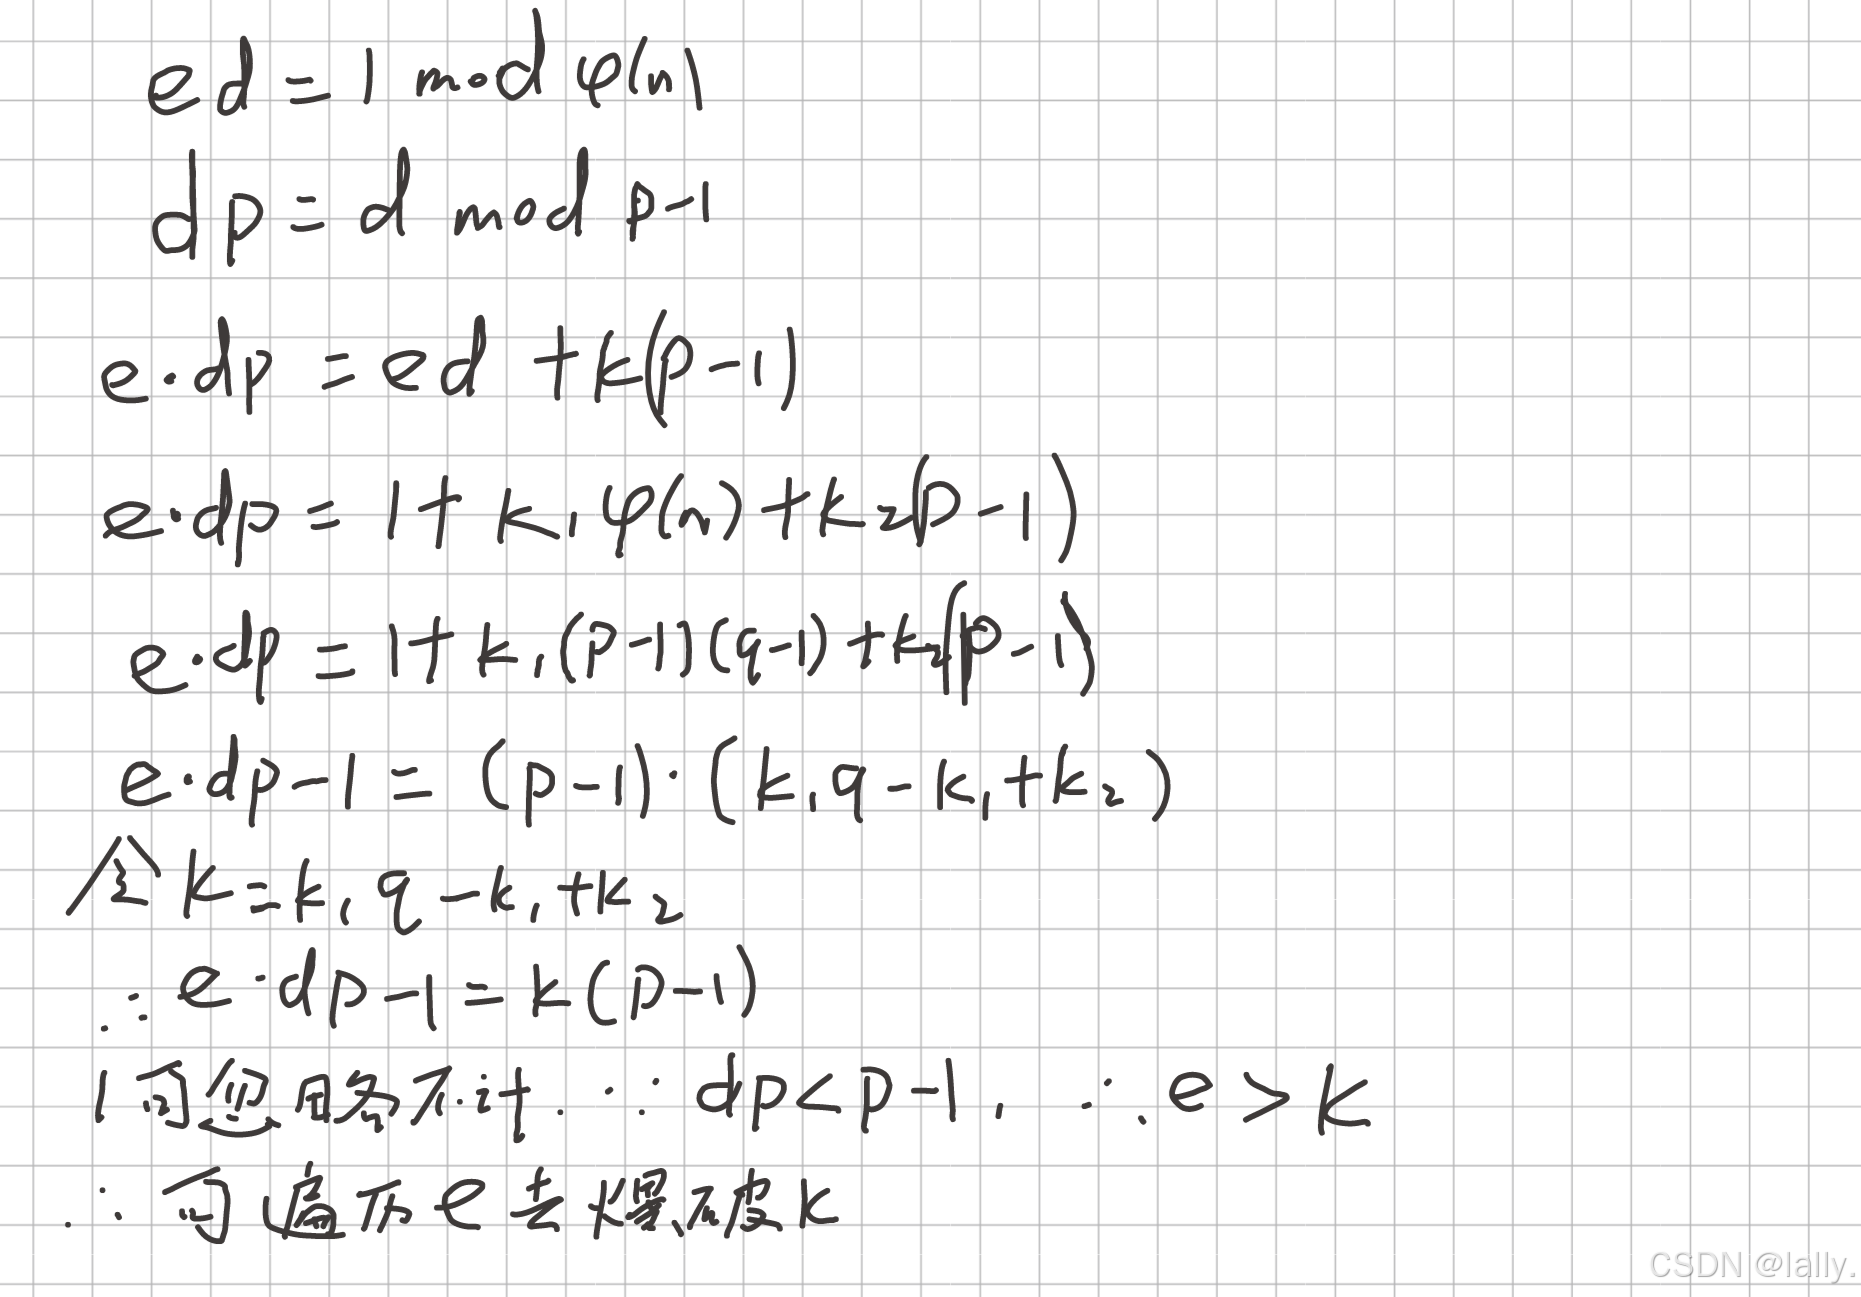 ed = 1 mod φ(n)
dp = d mod p-1
e·dp = ed + k(p-1)
e·dp = 1 + k₁φ(n) + k₂(p-1)
e·dp = 1 + k₁(p-1)(q-1) + k₂(p-1)
e·dp-1 = (p-1)·(k₁q - k₁ + k₂)
令 k = k₁q - k₁ + k₂
∴ e·dp-1 = k(p-1)
1可忽略不计. ∵ dp < p-1, ∴ e > k
∴ 可遍历e去爆破k
CSDN @lally.